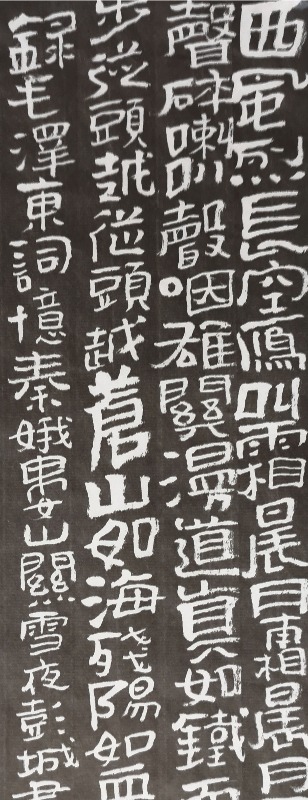 西風烈長空鴈叫霜晨月霜晨月
聲碎喇叭聲咽雄關漫道真如鐵而
步從頭越從頭越蒼山如海殘陽如血
錄毛澤東詞憶秦娥婁山關雪夜彭城書